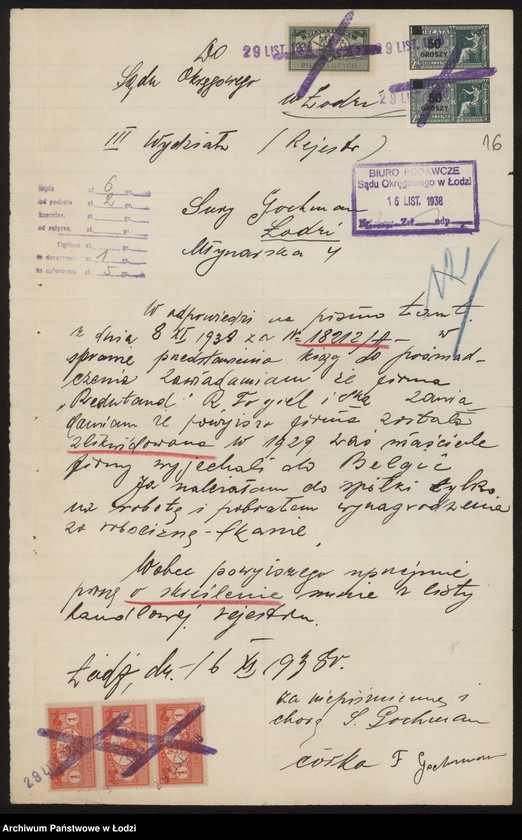 Do
Sądu Okręgowego
w Łodzi
III Wydział (Rejestr)
29 LIST. 1938
29 LIST. 1938
29 LIST.
OPŁATA
50
GROSZY
50
GROSZY
16
BIURO PODAWCZE
Sądu Okręgowego w Łodzi
16 LIST. 1938
Zał. odp.
zł. 6 gr.
od podania zł. 2 gr.
kancelar. zł. gr.
od załączn. zł. gr.
Ogółem zł. gr.
za doręczenie zł. 1 gr.
za ogłoszenie zł. 5 gr.
Sury Gochman
Łodzi
Młynarska 4
12
W odpowiedzi na pismo
z dnia 8 XI 1938 za № 18212/A – w
sprawie przedstawienia ksiąg do poświad-
czenia zawiadamiam że firma
R. Fogiel i Ska zawia
damiam że powyższa firma została
zlikwidowana w 1929 zaś właściciele
firmy wyjechali do Belgii
Ja należałam do spółki tylko
na robotę i pobrałam wynagrodzenie
za robociznę tkanie
Wobec powyższego uprzejmie
proszę o skreślenie mnie z listy
handlowej rejestru.
Łódź, dn. 16 XI 1938r.
za niepiśmienną i
chorą S. Gochman
córka F Gochman
29 LIST.
1 1 1
Archiwum Państwowe w Łodzi